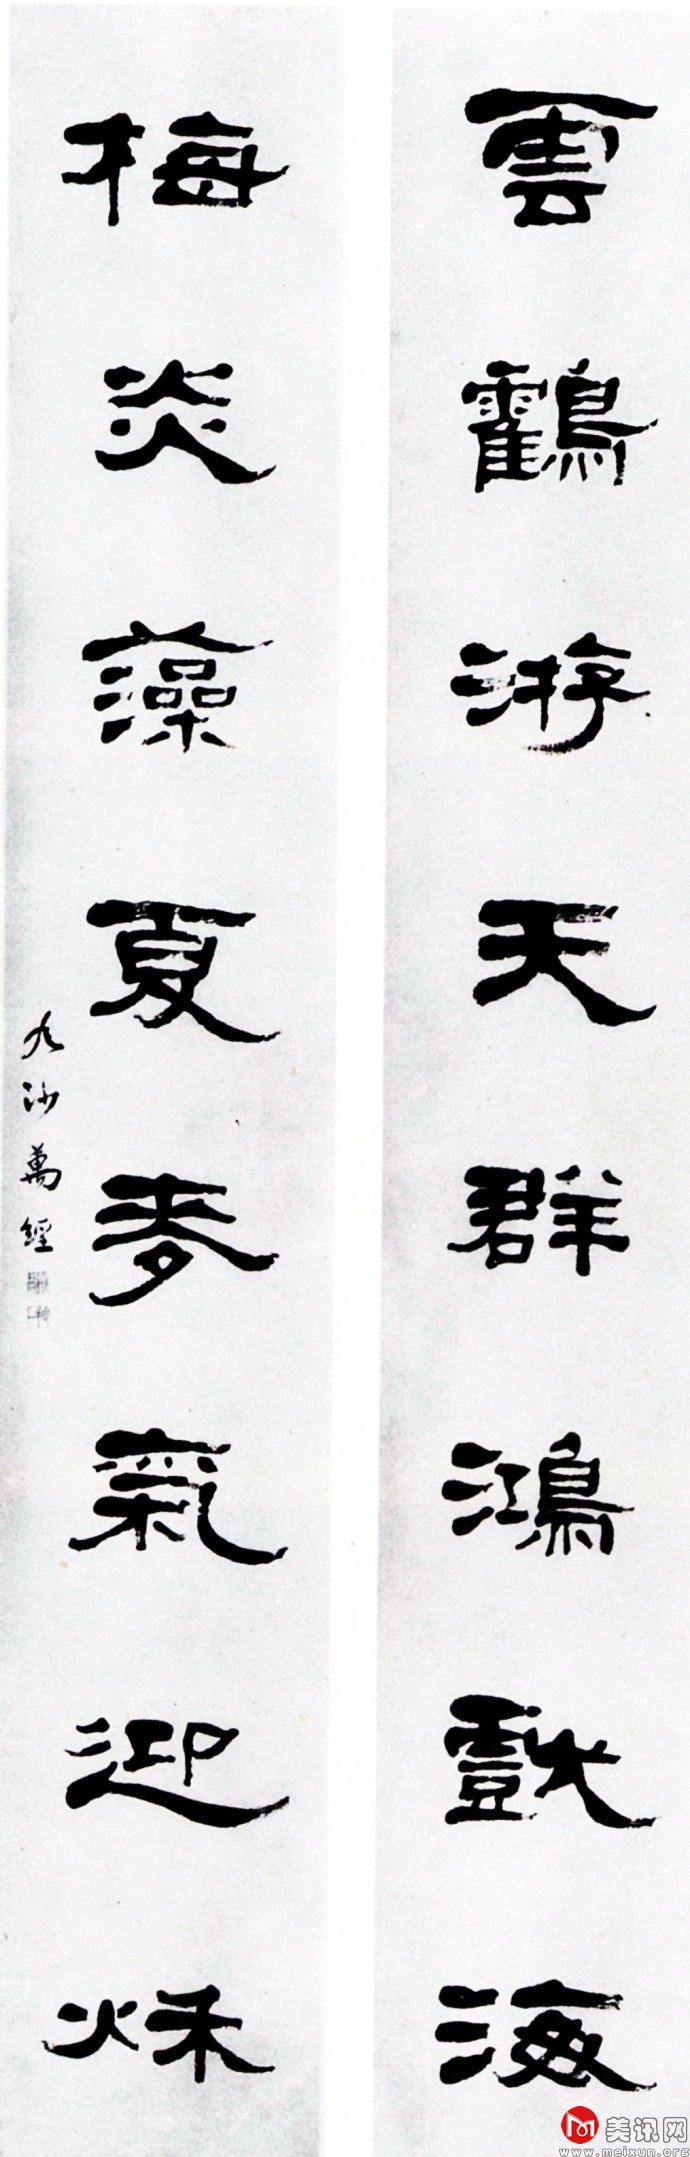 雲鸖游天群鴻戲海
梅炎藻夏麥氣迎秌
九沙萬經
美讯网
www.meixun.org